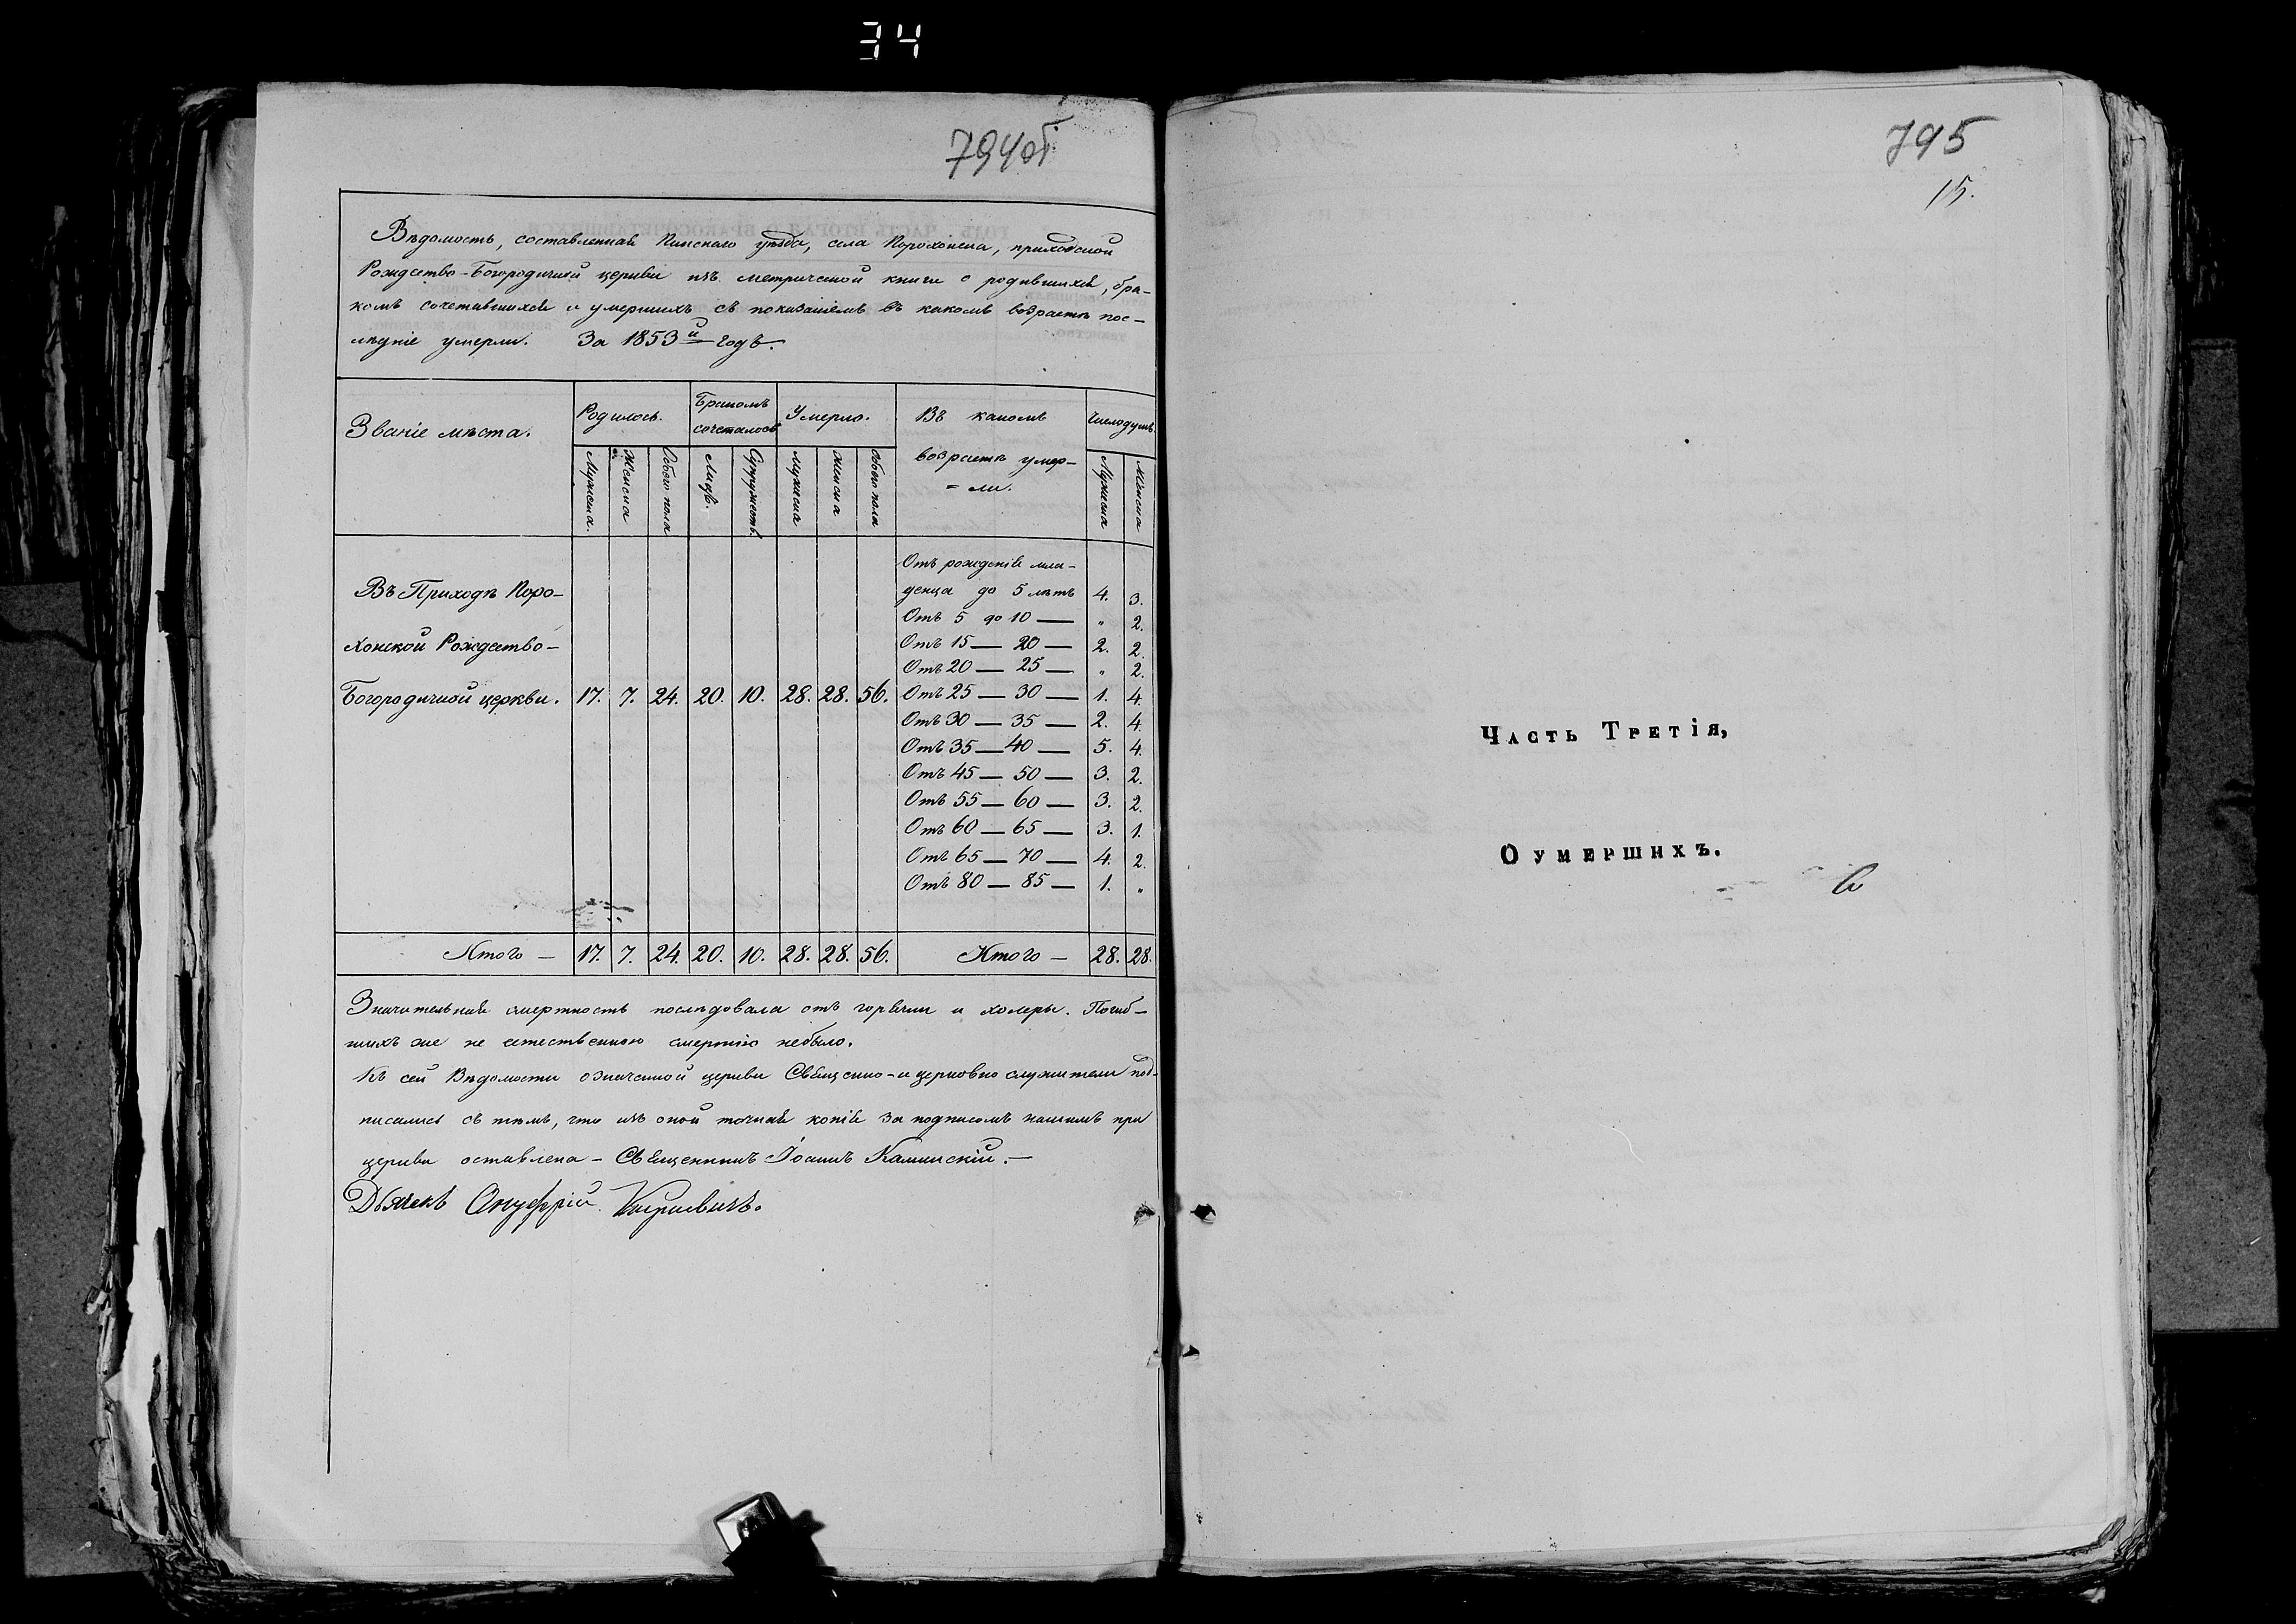 34
794об
Вѣдомость, составленная Пинскаго уѣзда, села Порохонска, приходской
Рождество-Богородичной церкви изъ метрической книги о родившихся, бра-
комъ сочетавшихся и умершихъ съ показаніемъ въ какомъ возрастѣ пос-
лѣдніе умерли. За 1853й годъ.
Званіе мѣста. Родилось. Бракомъ сочеталось Умерло. Въ какомъ возрастѣ умер- Число душъ.
= ли.
Мужска. Женска Обоего пола Лицъ. Супружествъ. Мужска Женска Обоего пола Мужска Женска
Отъ рожденія мла-
Въ Приходѣ Поро- денца до 5 лѣтъ 4. 3.
Отъ 5 до 10 — „ 2.
хонской Рождество- Отъ 15 — 20 — 2. 2.
Отъ 20 — 25 — „ 2.
Богородичной церкви. 17. 7. 24. 20. 10. 28. 28. 56. Отъ 25 — 30 — 1. 4.
Отъ 30 — 35 — 2. 4.
Отъ 35 — 40 — 5. 4.
Отъ 45 — 50 — 3. 2.
Отъ 55 — 60 — 3. 2.
Отъ 60 — 65 — 3. 1.
Отъ 65 — 70 — 4. 2.
Отъ 80 — 85 — 1. „
Итого — 17. 7. 24. 20. 10. 28. 28. 56. Итого — 28. 28.
Значительная смертность послѣдовала отъ горячки и холеры. Погиб-
шихъ же не естественною смертію небыло.
Къ сей Вѣдомости означенной церкви Священно-и церковно служители под-
писались съ тѣмъ, что изъ оной точная копія за подписомъ нашимъ при
церкви оставлена – Священникъ Іоаннъ Каминскій. —
Дьячекъ Онуфрій
795
15.
Часть Третія,
О умершихъ.